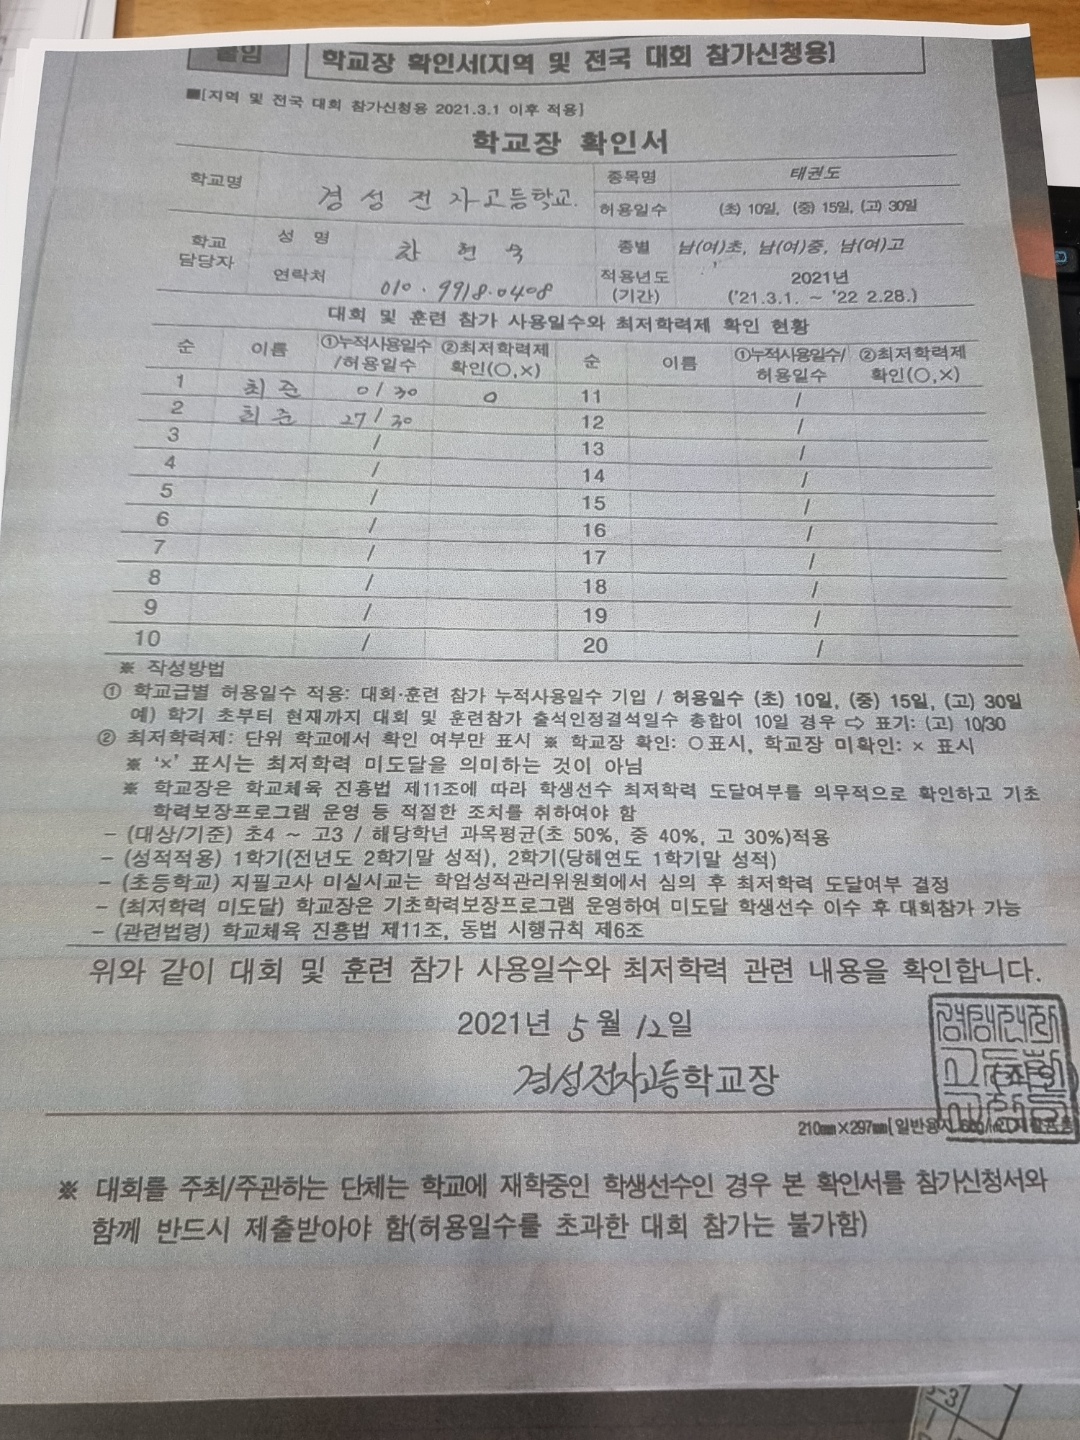 붙임 학교장 확인서[지역 및 전국 대회 참가신청용]
■[지역 및 전국 대회 참가신청용 2021.3.1 이후 적용]
학교장 확인서
학교명 경성전자고등학교. 종목명 태권도
허용일수 (초) 10일, (중) 15일, (고) 30일
학교 담당자 성 명 차 헌 욱 종별 남(여)초, 남(여)중, 남(여)고
연락처 010.9918.0408 적용년도 (기간) 2021년 ('21.3.1. ~ '22 2.28.)
대회 및 훈련 참가 사용일수와 최저학력제 확인 현황
순 이름 ①누적사용일수/허용일수 ②최저학력제 확인(○,×) 순 이름 ①누적사용일수/허용일수 ②최저학력제 확인(○,×)
1 최준 0/30 ○ 11 /
2 최준 27/30 12 /
3 / 13 /
4 / 14 /
5 / 15 /
6 / 16 /
7 / 17 /
8 / 18 /
9 / 19 /
10 / 20 /
※ 작성방법
① 학교급별 허용일수 적용: 대회·훈련 참가 누적사용일수 기입 / 허용일수 (초) 10일, (중) 15일, (고) 30일
예) 학기 초부터 현재까지 대회 및 훈련참가 출석인정결석일수 총합이 10일 경우 ⇨ 표기: (고) 10/30
② 최저학력제: 단위 학교에서 확인 여부만 표시 ※ 학교장 확인: ○표시, 학교장 미확인: × 표시
※ '×' 표시는 최저학력 미도달을 의미하는 것이 아님
※ 학교장은 학교체육 진흥법 제11조에 따라 학생선수 최저학력 도달여부를 의무적으로 확인하고 기초
학력보장프로그램 운영 등 적절한 조치를 취하여야 함
- (대상/기준) 초4 ~ 고3 / 해당학년 과목평균(초 50%, 중 40%, 고 30%)적용
- (성적적용) 1학기(전년도 2학기말 성적), 2학기(당해연도 1학기말 성적)
- (초등학교) 지필고사 미실시교는 학업성적관리위원회에서 심의 후 최저학력 도달여부 결정
- (최저학력 미도달) 학교장은 기초학력보장프로그램 운영하여 미도달 학생선수 이수 후 대회참가 가능
- (관련법령) 학교체육 진흥법 제11조, 동법 시행규칙 제6조
위와 같이 대회 및 훈련 참가 사용일수와 최저학력 관련 내용을 확인합니다.
2021년 5월 12일
경성전자고등학교장
210㎜×297㎜[일반용지
※ 대회를 주최/주관하는 단체는 학교에 재학중인 학생선수인 경우 본 확인서를 참가신청서와
함께 반드시 제출받아야 함(허용일수를 초과한 대회 참가는 불가함)